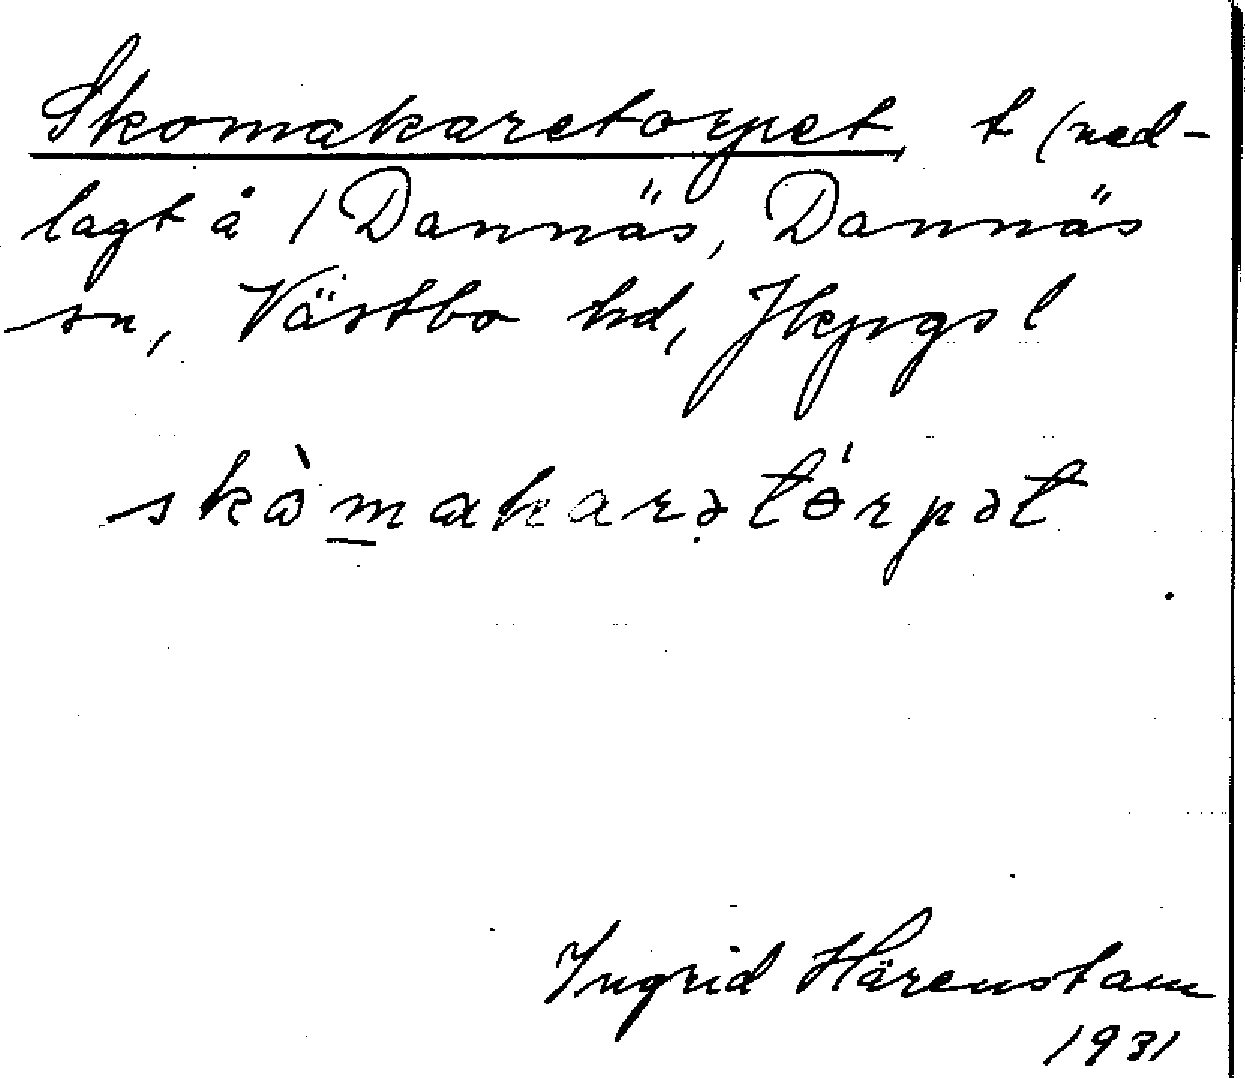 Skomakaretorpet t (ned-
lagt å 1 Dannäs, Dannäs
sn, Västbo hd, Jkpgs l
skòmakarətɵ́rpət
Ingrid Härenstam
1931